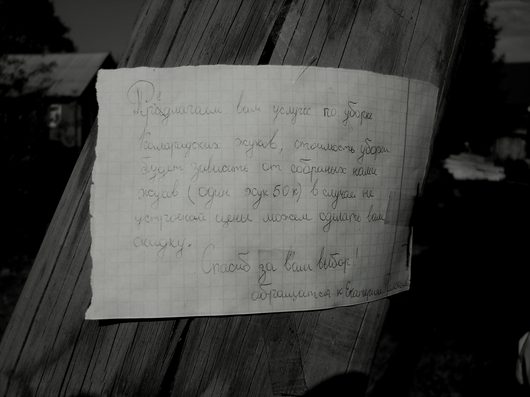 Предлагаем вам услуги по уборке
Каларидских жуков, стоимость уборки
будет зависить от собраных нами
жуков (один жук 50 к) в случае не
устроеной цены можем сделать вам
скидку.
Спасиб за ваш выбор!
обращатся к